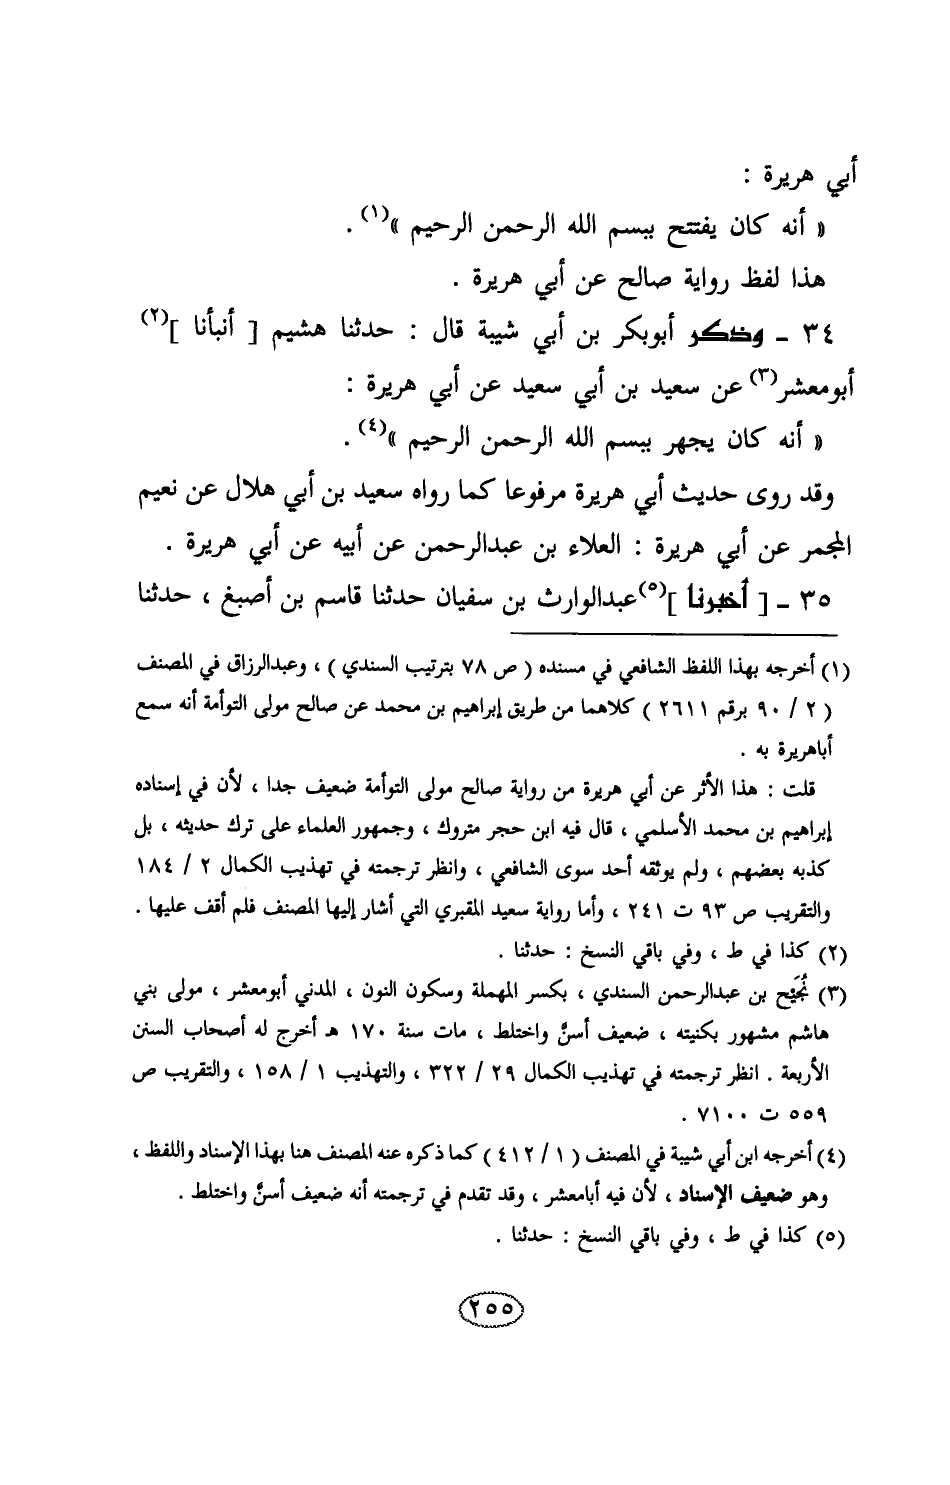 أبي هريرة :
« أنه كان يفتتح ببسم الله الرحمن الرحيم »(١) .
هذا لفظ رواية صالح عن أبي هريرة .
٣٤ ـ وذكر أبوبكر بن أبي شيبة قال : حدثنا هشيم [ أنبأنا ](٢)
أبومعشر(٣) عن سعيد بن أبي سعيد عن أبي هريرة :
« أنه كان يجهر ببسم الله الرحمن الرحيم »(٤) .
وقد روى حديث أبي هريرة مرفوعا كما رواه سعيد بن أبي هلال عن نعيم
المجمر عن أبي هريرة : العلاء بن عبدالرحمن عن أبيه عن أبي هريرة .
٣٥ ـ [ أخبرنا ](٥) عبدالوارث بن سفيان حدثنا قاسم بن أصبغ ، حدثنا
(١) أخرجه بهذا اللفظ الشافعي في مسنده ( ص ٧٨ بترتيب السندي ) ، وعبدالرزاق في المصنف
( ٢ / ٩٠ برقم ٢٦١١ ) كلاهما من طريق إبراهيم بن محمد عن صالح مولى التوأمة أنه سمع
أباهريرة به .
قلت : هذا الأثر عن أبي هريرة من رواية صالح مولى التوأمة ضعيف جدا ، لأن في إسناده
إبراهيم بن محمد الأسلمي ، قال فيه ابن حجر متروك ، وجمهور العلماء على ترك حديثه ، بل
كذبه بعضهم ، ولم يوثقه أحد سوى الشافعي ، وانظر ترجمته في تهذيب الكمال ٢ / ١٨٤
والتقريب ص ٩٣ ت ٢٤١ ، وأما رواية سعيد المقبري التي أشار إليها المصنف فلم أقف عليها .
(٢) كذا في ط ، وفي باقي النسخ : حدثنا .
(٣) نُجَيْح بن عبدالرحمن السندي ، بكسر المهملة وسكون النون ، المدني أبومعشر ، مولى بني
هاشم مشهور بكنيته ، ضعيف أسنَّ واختلط ، مات سنة ١٧٠ هـ أخرج له أصحاب السنن
الأربعة . انظر ترجمته في تهذيب الكمال ٢٩ / ٣٢٢ ، والتهذيب ١ / ١٥٨ ، والتقريب ص
٥٥٩ ت ٧١٠٠ .
(٤) أخرجه ابن أبي شيبة في المصنف ( ١ / ٤١٢ ) كما ذكره عنه المصنف هنا بهذا الإسناد واللفظ ،
وهو ضعيف الإسناد ، لأن فيه أبامعشر ، وقد تقدم في ترجمته أنه ضعيف أسنَّ واختلط .
(٥) كذا في ط ، وفي باقي النسخ : حدثنا .
٢٥٥